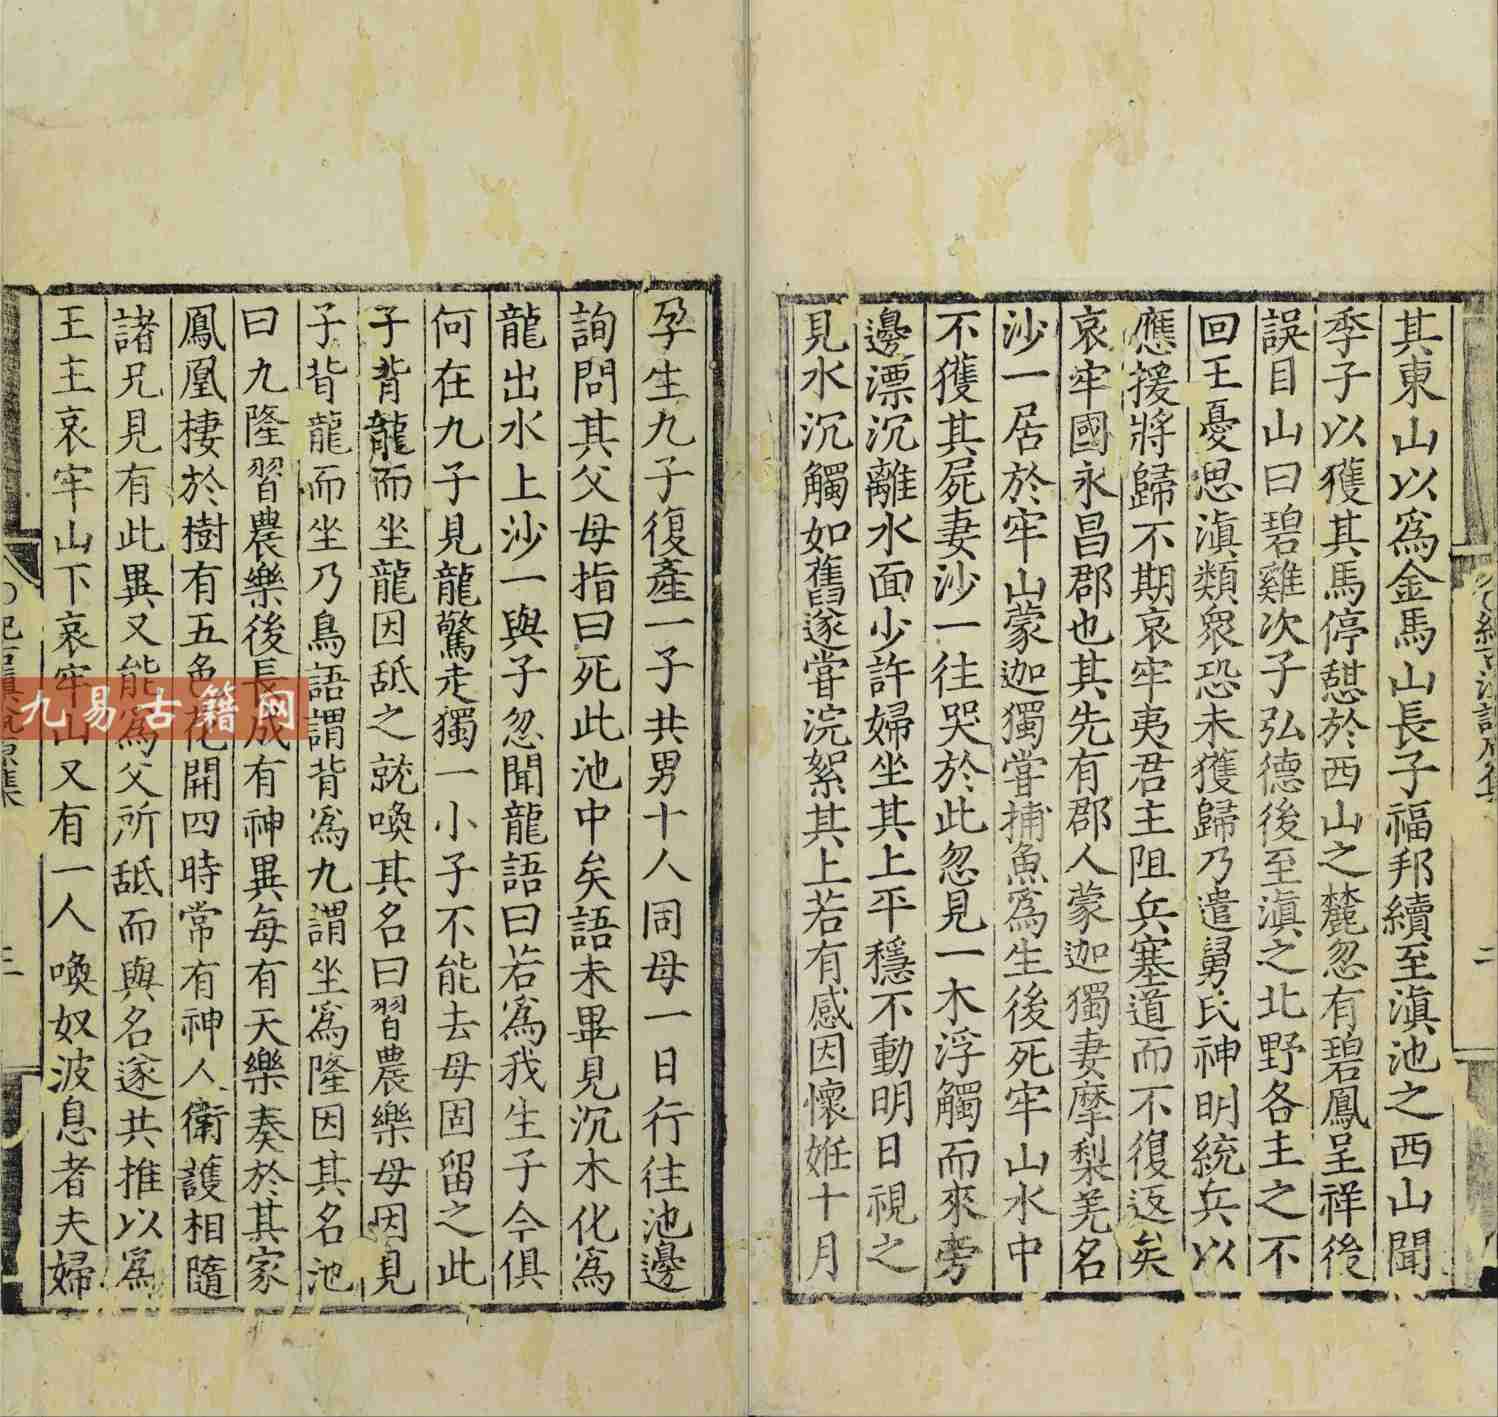 其東山以為金馬山長子福邦續至滇池之西山聞
季子以獲其馬停憇於西山之麓忽有碧鳳呈祥後
誤目山曰碧雞次子弘德後至滇之北野各主之不
回王憂思滇類衆恐未獲歸乃遣舅氏神明統兵以
應援將歸不期哀牢夷君主阻兵塞道而不復返矣
哀牢國永昌郡也其先有郡人蒙迦獨妻摩梨羌名
沙一居於牢山蒙迦獨甞捕魚為生後死牢山水中
不獲其屍妻沙一往哭於此忽見一木浮觸而來旁
邊漂沉離水面少許婦坐其上平穩不動明日視之
見水沉觸如舊遂甞浣絮其上若有感因懷姙十月
孕生九子復產一子共男十人同母一日行往池邊
詢問其父母指曰死此池中矣語未畢見沉木化為
龍出水上沙一與子忽聞龍語曰若為我生子今俱
何在九子見龍驚走獨一小子不能去母固留之此
子背龍而坐龍因舐之就喚其名曰習農樂母因見
子背龍而坐乃鳥語謂背為九謂坐為隆因其名池
曰九隆習農樂後長成有神異每有天樂奏於其家
鳳凰棲於樹有五色花開四時常有神人衛護相隨
諸兄見有此異又能為父所舐而與名遂共推以為
王主哀牢山下哀牢山又有一人喚奴波息者夫婦
二
三
九易古籍网